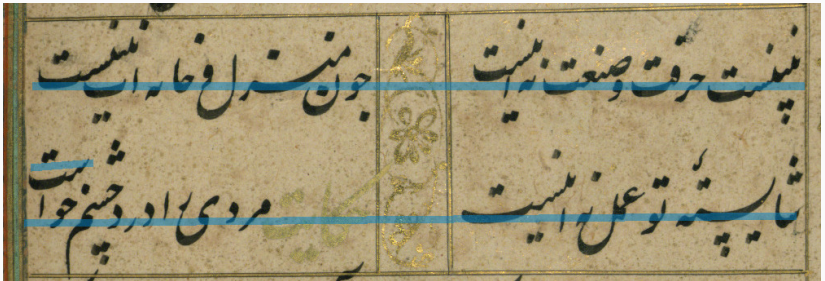 حرفت و صنعت نه اینست
جون منزل و خانه ات نیینست
شایستهٔ تو عمل نه اینست
حکایت
مردی را درد چشم خواست